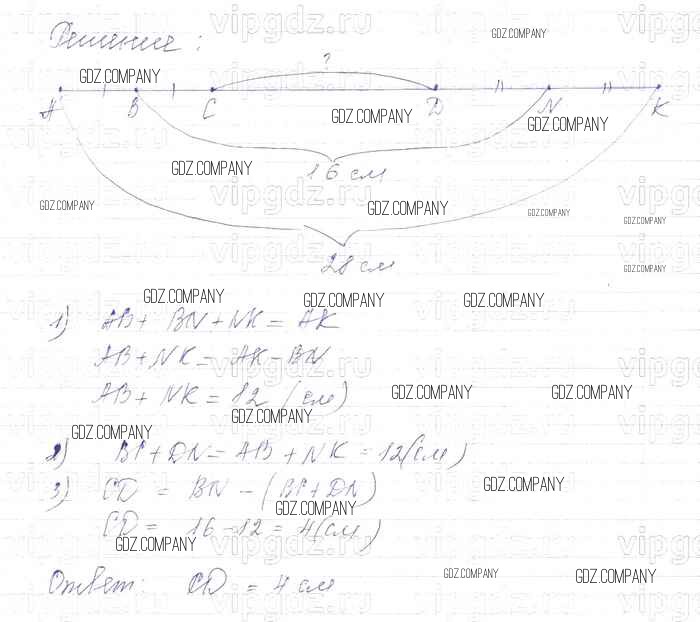 Решение:
?
A B C D N K
16 см
28 см
1) AB + BN + NK = AK
AB + NK = AK - BN
AB + NK = 12 (см)
2) BC + DN = AB + NK = 12 (см)
3) CD = BN - (BC + DN)
CD = 16 - 12 = 4 (см)
Ответ: CD = 4 см
GDZ.COMPANY
vipgdz.ru